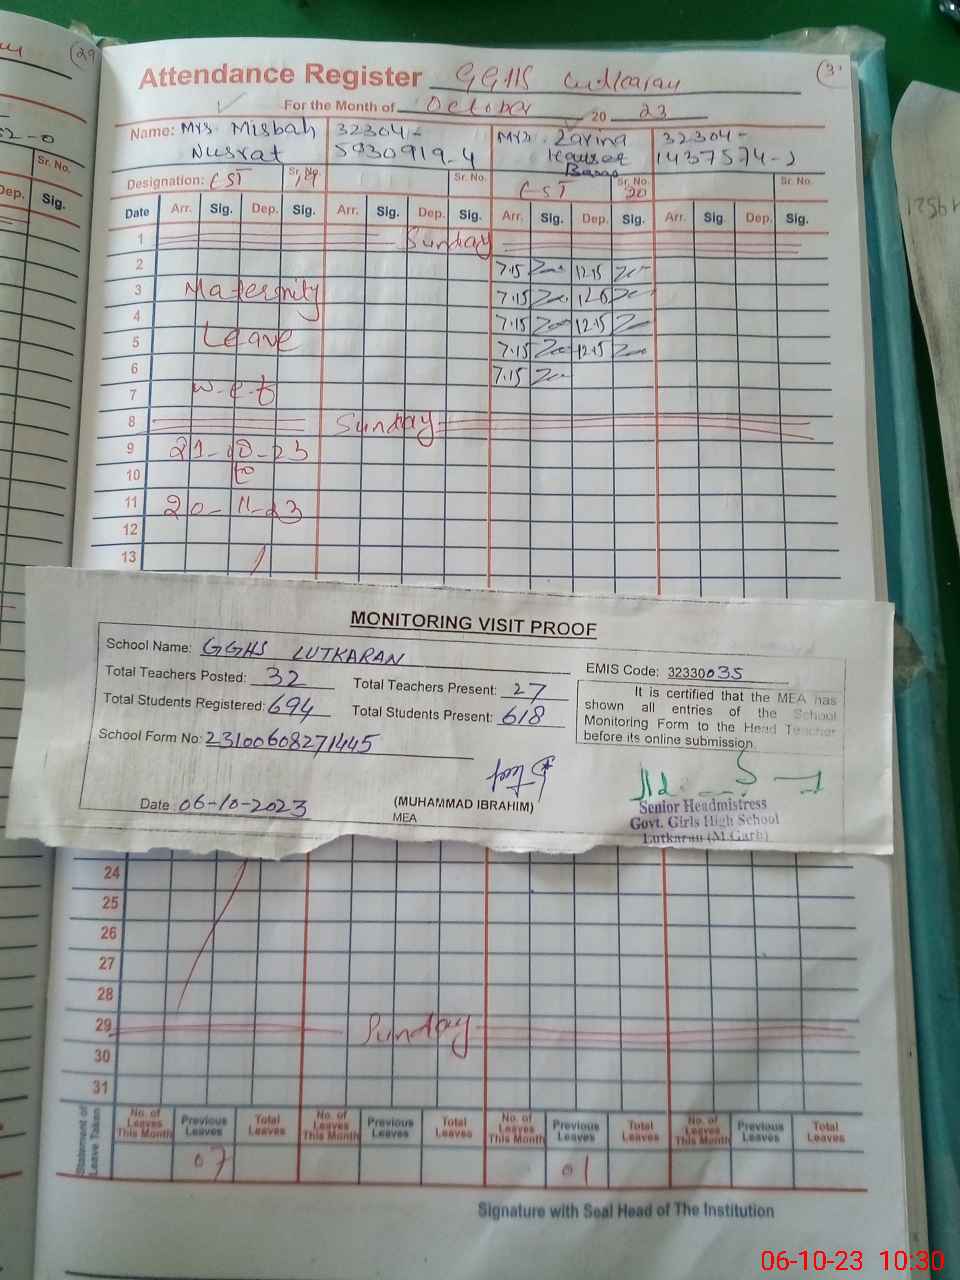 29
Attendance Register GGHS Lutkaran
For the Month of October 20 23
Name: Mrs. Misbah Nusrat 32304-5930919-4 Mrs. Zarina Kausar 32304-1437574-
Designation: EST Sr. No. 19 Sr. No. EST Sr. No. 20 Sr. No.
Date Arr. Sig. Dep. Sig. Arr. Sig. Dep. Sig. Arr. Sig. Dep. Sig. Arr. Sig Dep. Sig.
1 Sunday
2 7.15 12.15
3 Maternity 7.15
4 7.15 12.15
5 Leave 7.15 12.15
6 7.15
7 w.e.f
8 Sunday
9 21-10-23
10 to
11 20-11-23
12
13
MONITORING VISIT PROOF
School Name: GGHS LUTKARAN
EMIS Code: 32330035
Total Teachers Posted: 32 Total Teachers Present: 27
Total Students Registered: 694 Total Students Present: 618
School Form No: 23100608271445
It is certified that the MEA has
shown all entries of the School
Monitoring Form to the Head Teacher
before its online submission
Date: 06-10-2023
(MUHAMMAD IBRAHIM)
MEA
Senior Headmistress
Govt. Girls High School
Lutkaran (M.Garh)
24
25
26
27
28
29 Sunday
30
31
Statement of Leave Taken No. of Leaves This Month Previous Leaves Total Leaves No. of Leaves This Month Previous Leaves Total Leaves No. of Leaves This Month Previous Leaves Total Leaves No. of Leaves This Month Previous Leaves Total Leaves
07 01
Signature with Seal Head of The Institution
06-10-23 10:30
52-0
Sr. No.
Dep. Sig.